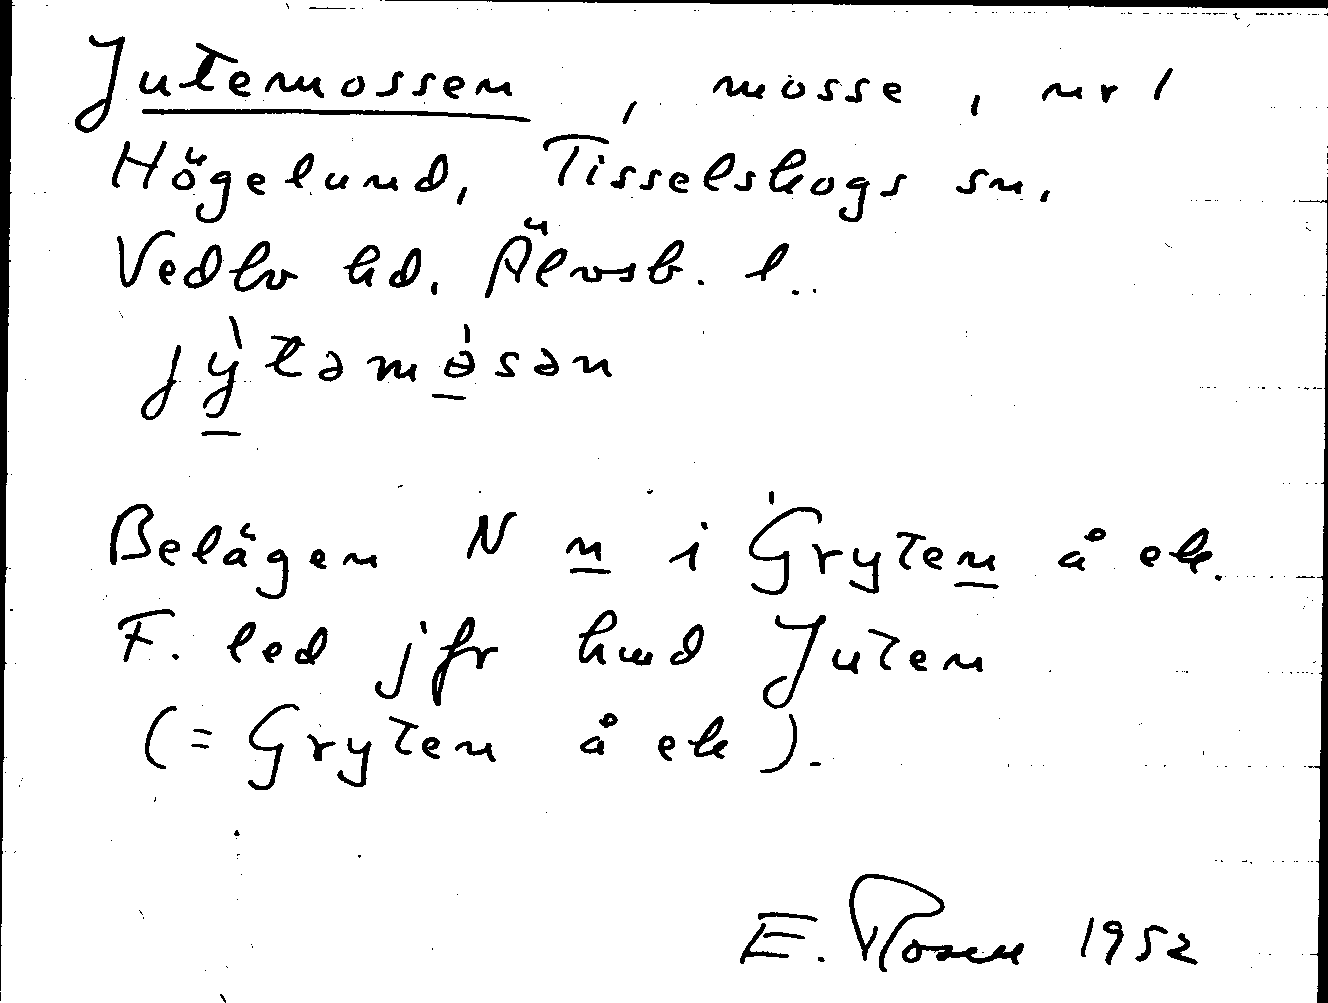 Jutemossen, mosse, nr 1
Högelund, Tisselskogs sn.
Vedbo hd. Älvsb. l.
jỳ̠təmə̠̀sən
Belägen N n̲ i Gryten̲ å ek.
F. led jfr hmd Juten
(= Gryten å ek).
E. Rosell 1952